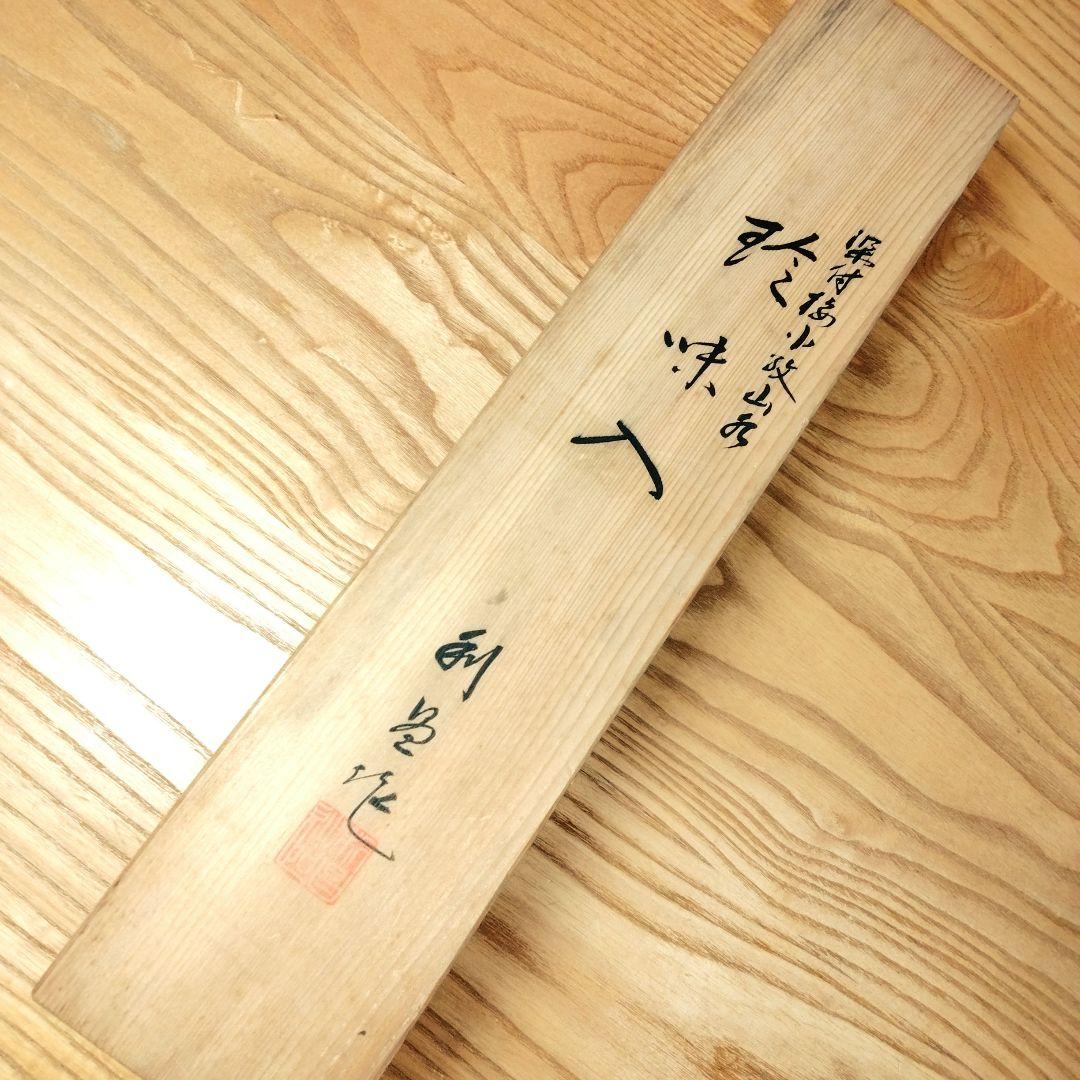 染付梅小紋山水
珍味入
利昌作